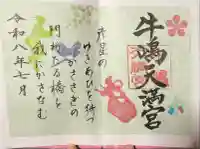 牛嶋天満宮
彦星の
ゆきあひを待つ
かささぎの
渡せる橋を
我にかさなむ
令和八年七月